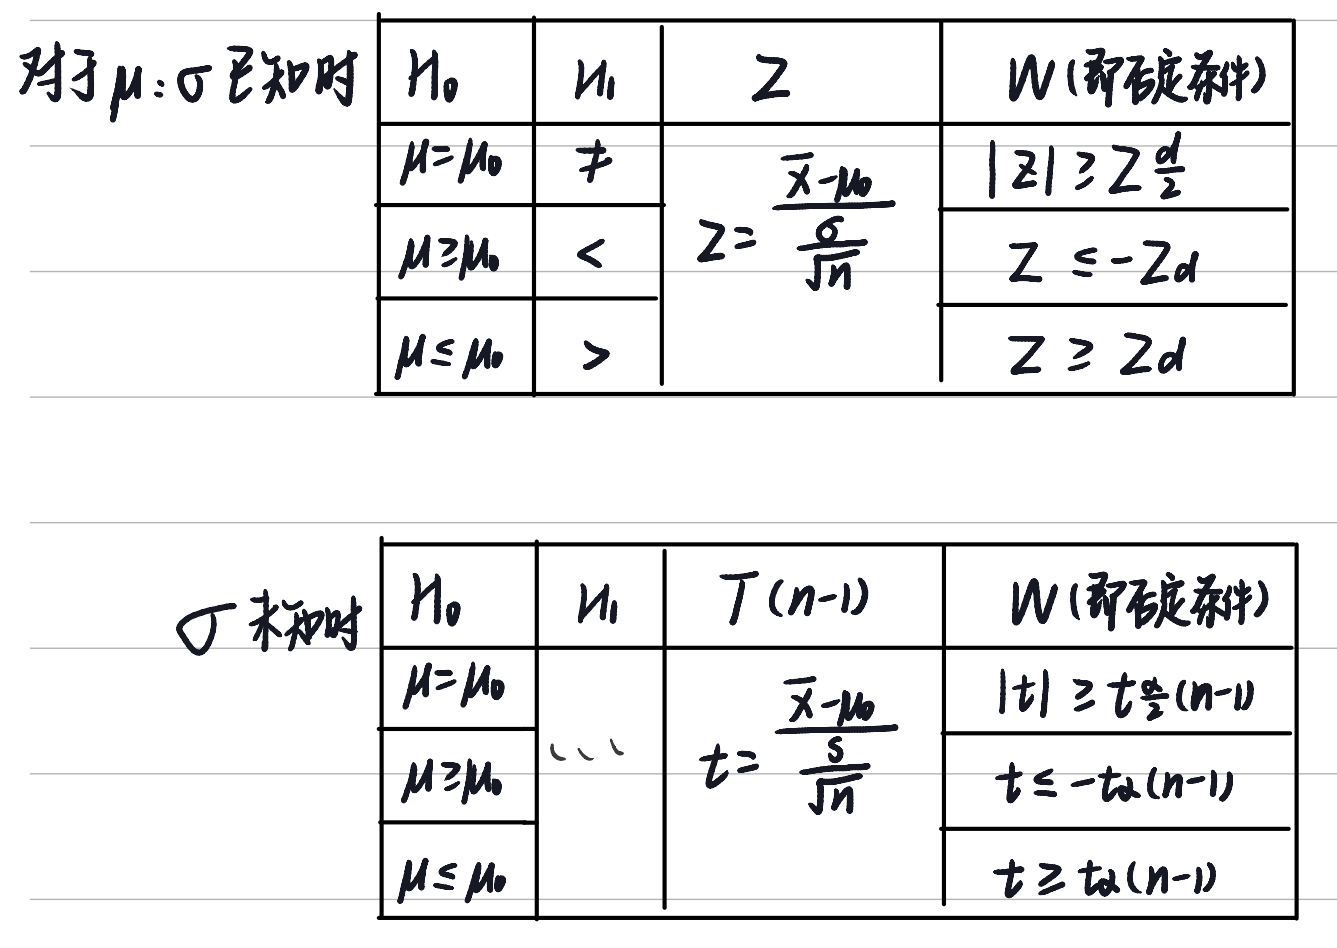 对于μ:σ已知时 H₀ H₁ Z W(即否定条件)
μ=μ₀ ≠ Z=(x̄-μ₀)/(σ/√n) |Z|≥Z_{α/2}
μ≥μ₀ < Z≤-Zα
μ≤μ₀ > Z≥Zα
σ未知时 H₀ H₁ T(n-1) W(即否定条件)
μ=μ₀ t=(x̄-μ₀)/(s/√n) |t|≥t_{α/2}(n-1)
μ≥μ₀ 、、、 t≤-tα(n-1)
μ≤μ₀ t≥tα(n-1)